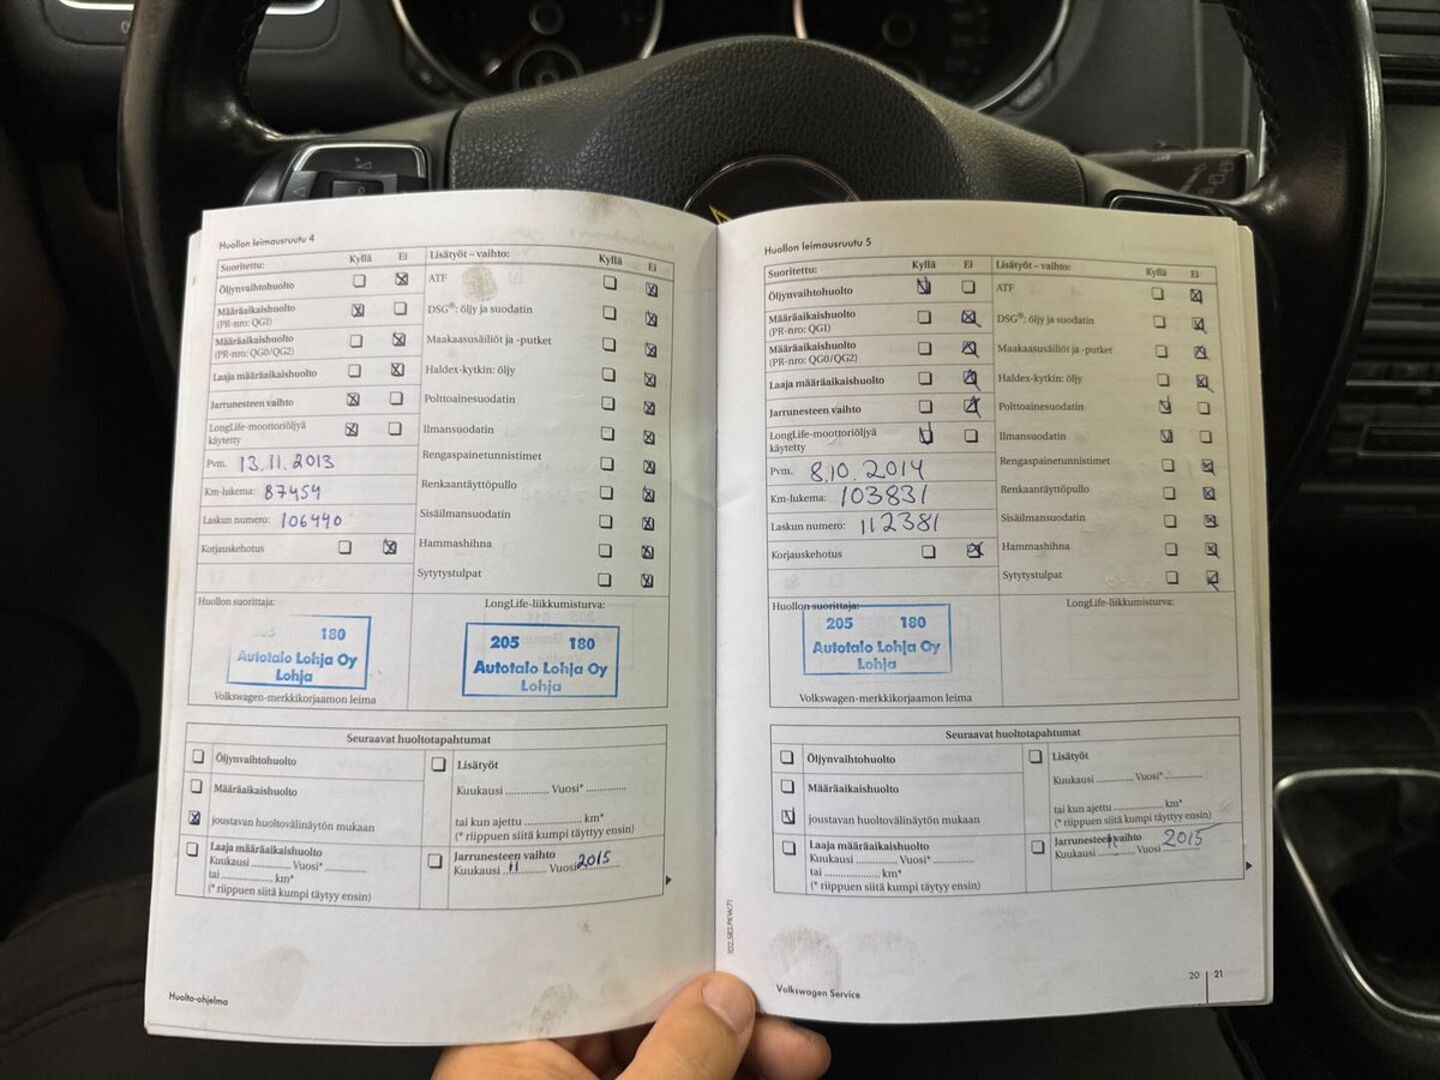 Huollon leimausruutu 4
Suoritettu: Kyllä Ei
Öljynvaihtohuolto
Määräaikaishuolto
(PR-nro: QG1)
Määräaikaishuolto
(PR-nro: QG0/QG2)
Laaja määräaikaishuolto
Jarrunesteen vaihto
LongLife-moottoriöljyä
käytetty
Pvm. 13.11.2013
Km-lukema: 87459
Laskun numero: 106440
Korjauskehotus
Lisätyöt – vaihto: Kyllä Ei
ATF
DSG®: öljy ja suodatin
Maakaasusäiliöt ja -putket
Haldex-kytkin: öljy
Polttoainesuodatin
Ilmansuodatin
Rengaspainetunnistimet
Renkaantäyttöpullo
Sisäilmansuodatin
Hammashihna
Sytytystulpat
Huollon suorittaja:
205 180
Autotalo Lohja Oy
Lohja
Volkswagen-merkkikorjaamon leima
LongLife-liikkumisturva:
205 180
Autotalo Lohja Oy
Lohja
Seuraavat huoltotapahtumat
Öljynvaihtohuolto
Määräaikaishuolto
joustavan huoltovälinäytön mukaan
Laaja määräaikaishuolto
Kuukausi ............ Vuosi* ............
tai ................ km*
(* riippuen siitä kumpi täytyy ensin)
Lisätyöt
Kuukausi ............ Vuosi* ............
tai kun ajettu ................ km*
(* riippuen siitä kumpi täyttyy ensin)
Jarrunesteen vaihto
Kuukausi 11 Vuosi 2015
Huolto-ohjelma
Huollon leimausruutu 5
Suoritettu: Kyllä Ei
Öljynvaihtohuolto
Määräaikaishuolto
(PR-nro: QG1)
Määräaikaishuolto
(PR-nro: QG0/QG2)
Laaja määräaikaishuolto
Jarrunesteen vaihto
LongLife-moottoriöljyä
käytetty
Pvm. 8.10.2014
Km-lukema: 103831
Laskun numero: 112381
Korjauskehotus
Lisätyöt – vaihto: Kyllä Ei
ATF
DSG®: öljy ja suodatin
Maakaasusäiliöt ja -putket
Haldex-kytkin: öljy
Polttoainesuodatin
Ilmansuodatin
Rengaspainetunnistimet
Renkaantäyttöpullo
Sisäilmansuodatin
Hammashihna
Sytytystulpat
Huollon suorittaja:
205 180
Autotalo Lohja Oy
Lohja
Volkswagen-merkkikorjaamon leima
LongLife-liikkumisturva:
Seuraavat huoltotapahtumat
Öljynvaihtohuolto
Määräaikaishuolto
joustavan huoltovälinäytön mukaan
Laaja määräaikaishuolto
Kuukausi ............ Vuosi* ............
tai ................ km*
(* riippuen siitä kumpi täytyy ensin)
Lisätyöt
Kuukausi ............ Vuosi* ............
tai kun ajettu ................ km*
(* riippuen siitä kumpi täyttyy ensin)
Jarrunesteen vaihto
Kuukausi 11 Vuosi 2015
Volkswagen Service
20 | 21